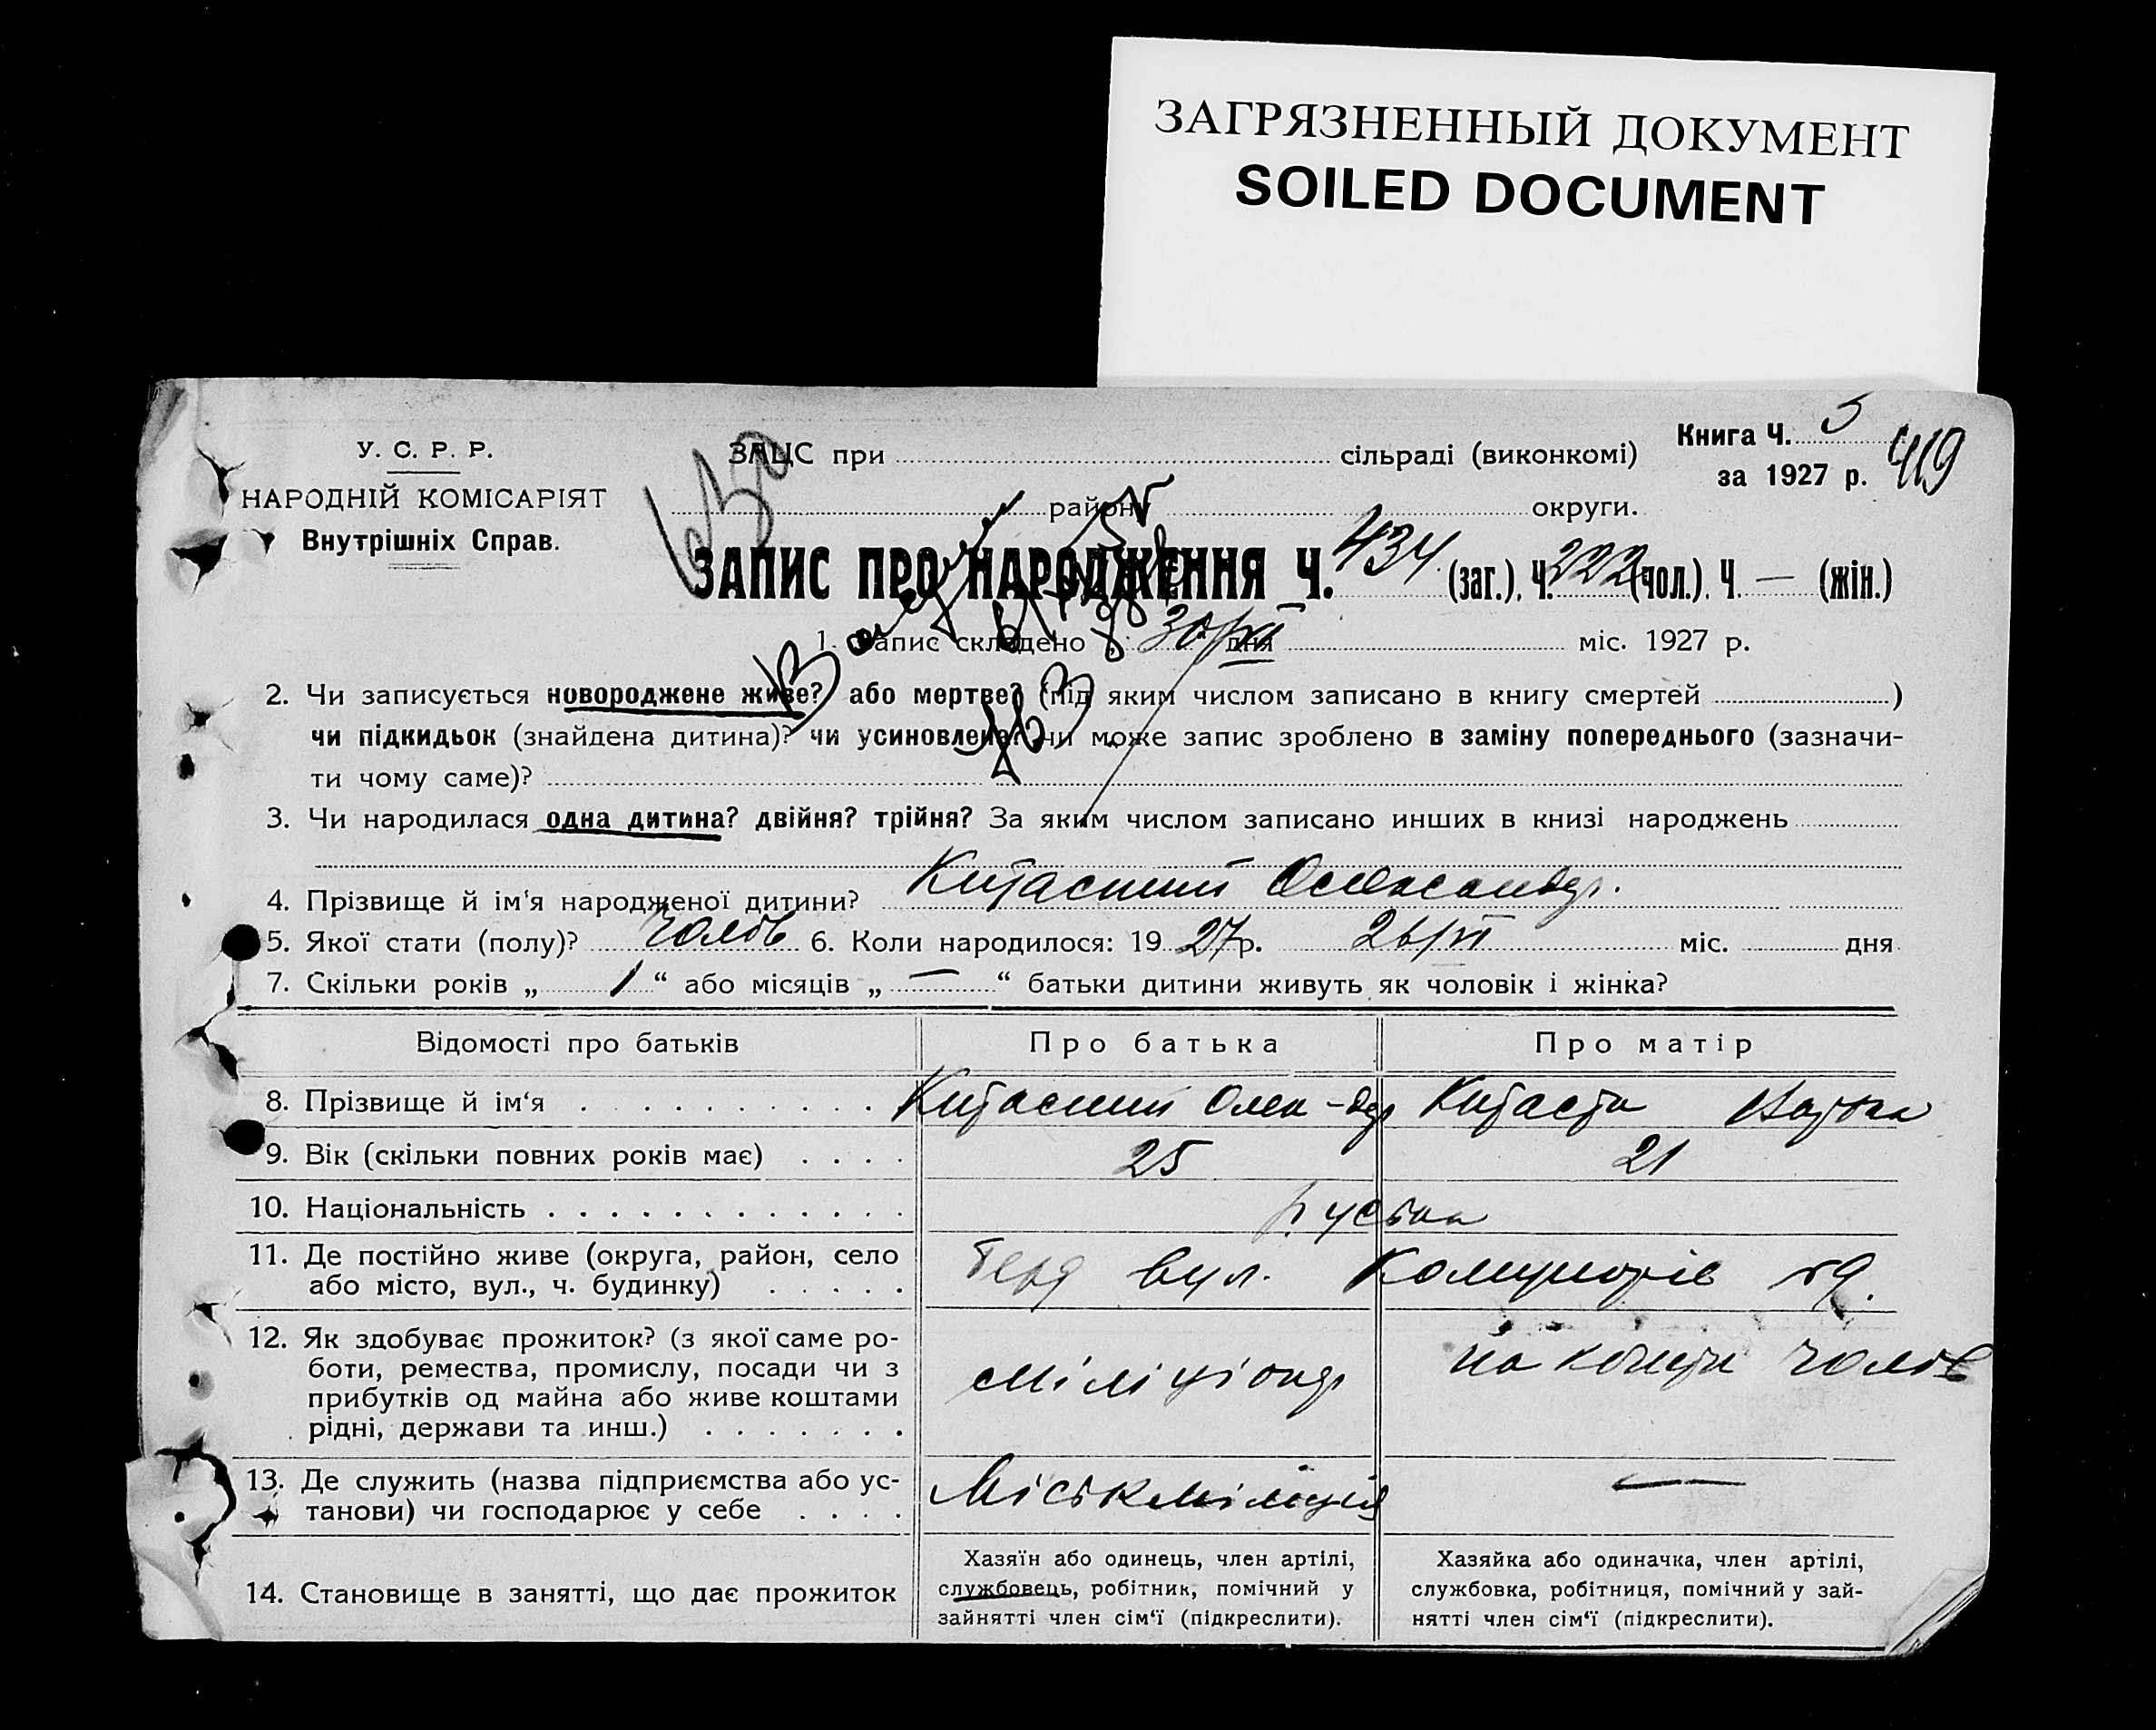 ЗАГРЯЗНЕННЫЙ ДОКУМЕНТ
SOILED DOCUMENT
У. С. Р. Р.
НАРОДНІЙ КОМІСАРІЯТ
Внутрішніх Справ.
ЗАЦС при сільраді (виконкомі)
району округи.
Книга Ч. 5
за 1927 р. 419
ЗАПИС ПРО НАРОДЖЕННЯ Ч. 434 (заг.), Ч. 222 (чол.). Ч. — (жін.)
1. Запис складено „ дня міс. 1927 р.
2. Чи записується новороджене живе? або мертве? (під яким числом записано в книгу смертей )
чи підкидьок (знайдена дитина)? чи усиновлена? чи може запис зроблено в заміну попереднього (зазначи-
ти чому саме)?
3. Чи народилася одна дитина? двійня? трійня? За яким числом записано инших в книзі народжень
4. Прізвище й ім'я народженої дитини? Китастий Олександр.
5. Якої стати (полу)? Чолов 6. Коли народилося: 1927 р. 26/VI міс. дня
7. Скільки років „ 1 “ або місяців „ — “ батьки дитини живуть як чоловік і жінка?
Відомості про батьків Про батька Про матір
8. Прізвище й ім'я Китастий Олек-др Китаста
9. Вік (скільки повних років має) 25 21
10. Національність руська
11. Де постійно живе (округа, район, село
або місто, вул., ч. будинку) вул. Комунарів
12. Як здобуває прожиток? (з якої саме ро-
боти, ремества, промислу, посади чи з
прибутків од майна або живе коштами
рідні, держави та инш.) міліціонер на кошти чолов
13. Де служить (назва підприємства або ус-
танови) чи господарює у себе Міськміліція —
14. Становище в занятті, що дає прожиток
Хазяїн або одинець, член артілі,
службовець, робітник, помічний у
зайнятті член сім'ї (підкреслити).
Хазяйка або одиначка, член артілі,
службовка, робітниця, помічний у зай-
нятті член сім'ї (підкреслити).